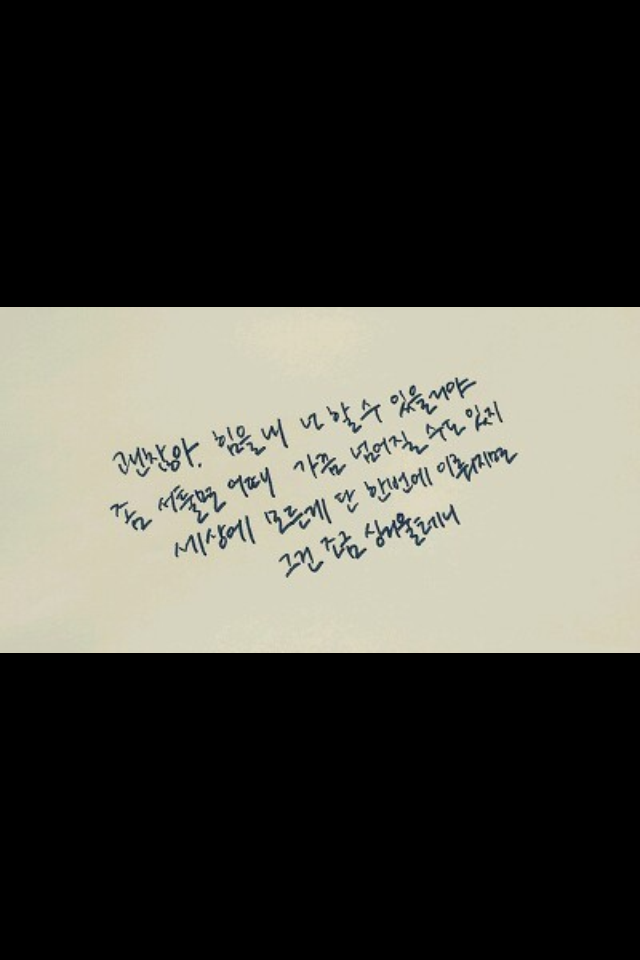 괜찮아. 힘을내 넌 할수 있을거야
좀 서툴면 어때 가끔 넘어질 수도 있지
세상에 모든게 단 한번에 이뤄지면
그건 조금 싱거울테니